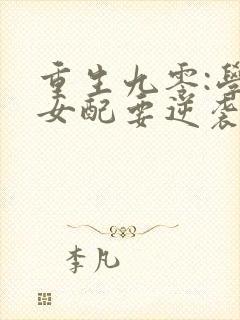 重生九零:學
女配要逆袭
李凡